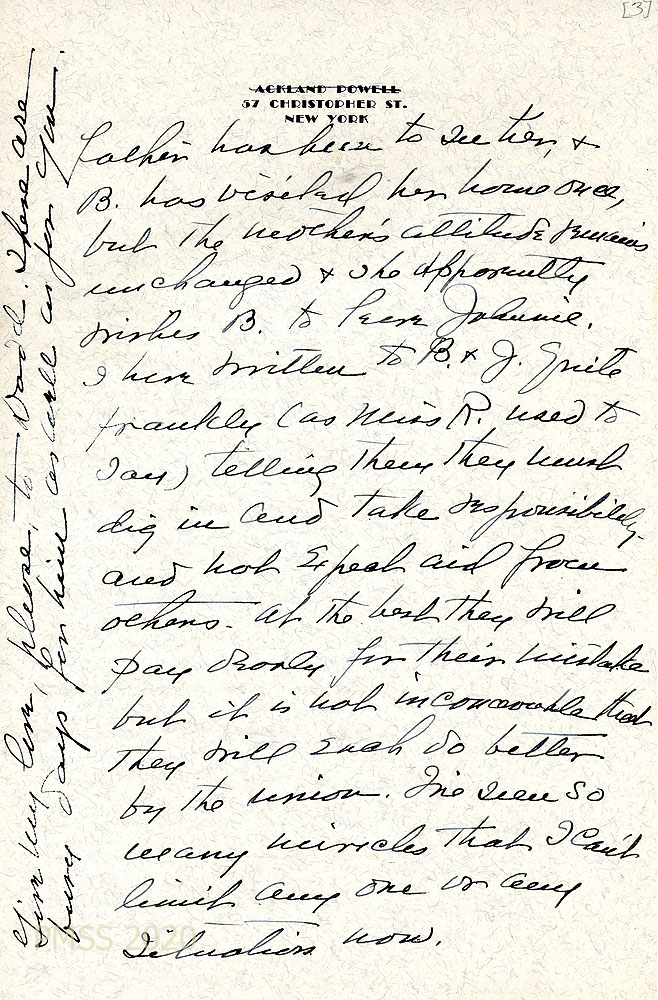 [3]
ACKLAND POWELL
57 CHRISTOPHER ST.
NEW YORK
father has been to see her, &
B. has visited her home once,
but the mother's attitude remains
unchanged & she apparently
wishes B. to leave Johnnie.
I have written to B. & J. quite
frankly (as Miss R. used to
say) telling them they must
dig in and take responsibility
and not expect aid from
others. At the best they will
pay dearly for their mistake
but it is not inconceivable that
they will each do better
by the union. I've seen so
many miracles that I can't
limit any one or any
situation now.
Give my love, please, to Dodd. These are
busy days for him as well as for you.
PMSS 2020